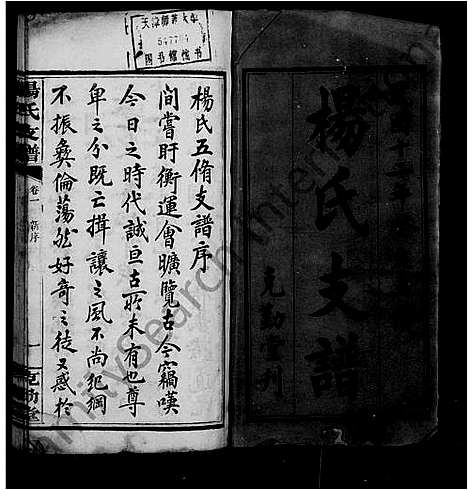 楊氏支譜
克勤堂刊
天津師范大学
547704
图书馆藏书
楊氏五脩支譜序
間嘗盱衡運會曠覽古今竊嘆
今日之時代誠亘古所未有也尊
卑之分既亡揖讓之風不尚紀綱
不振彜倫蕩然好奇之徒又惑於
楊氏支譜 卷一 新序 一 克勤堂